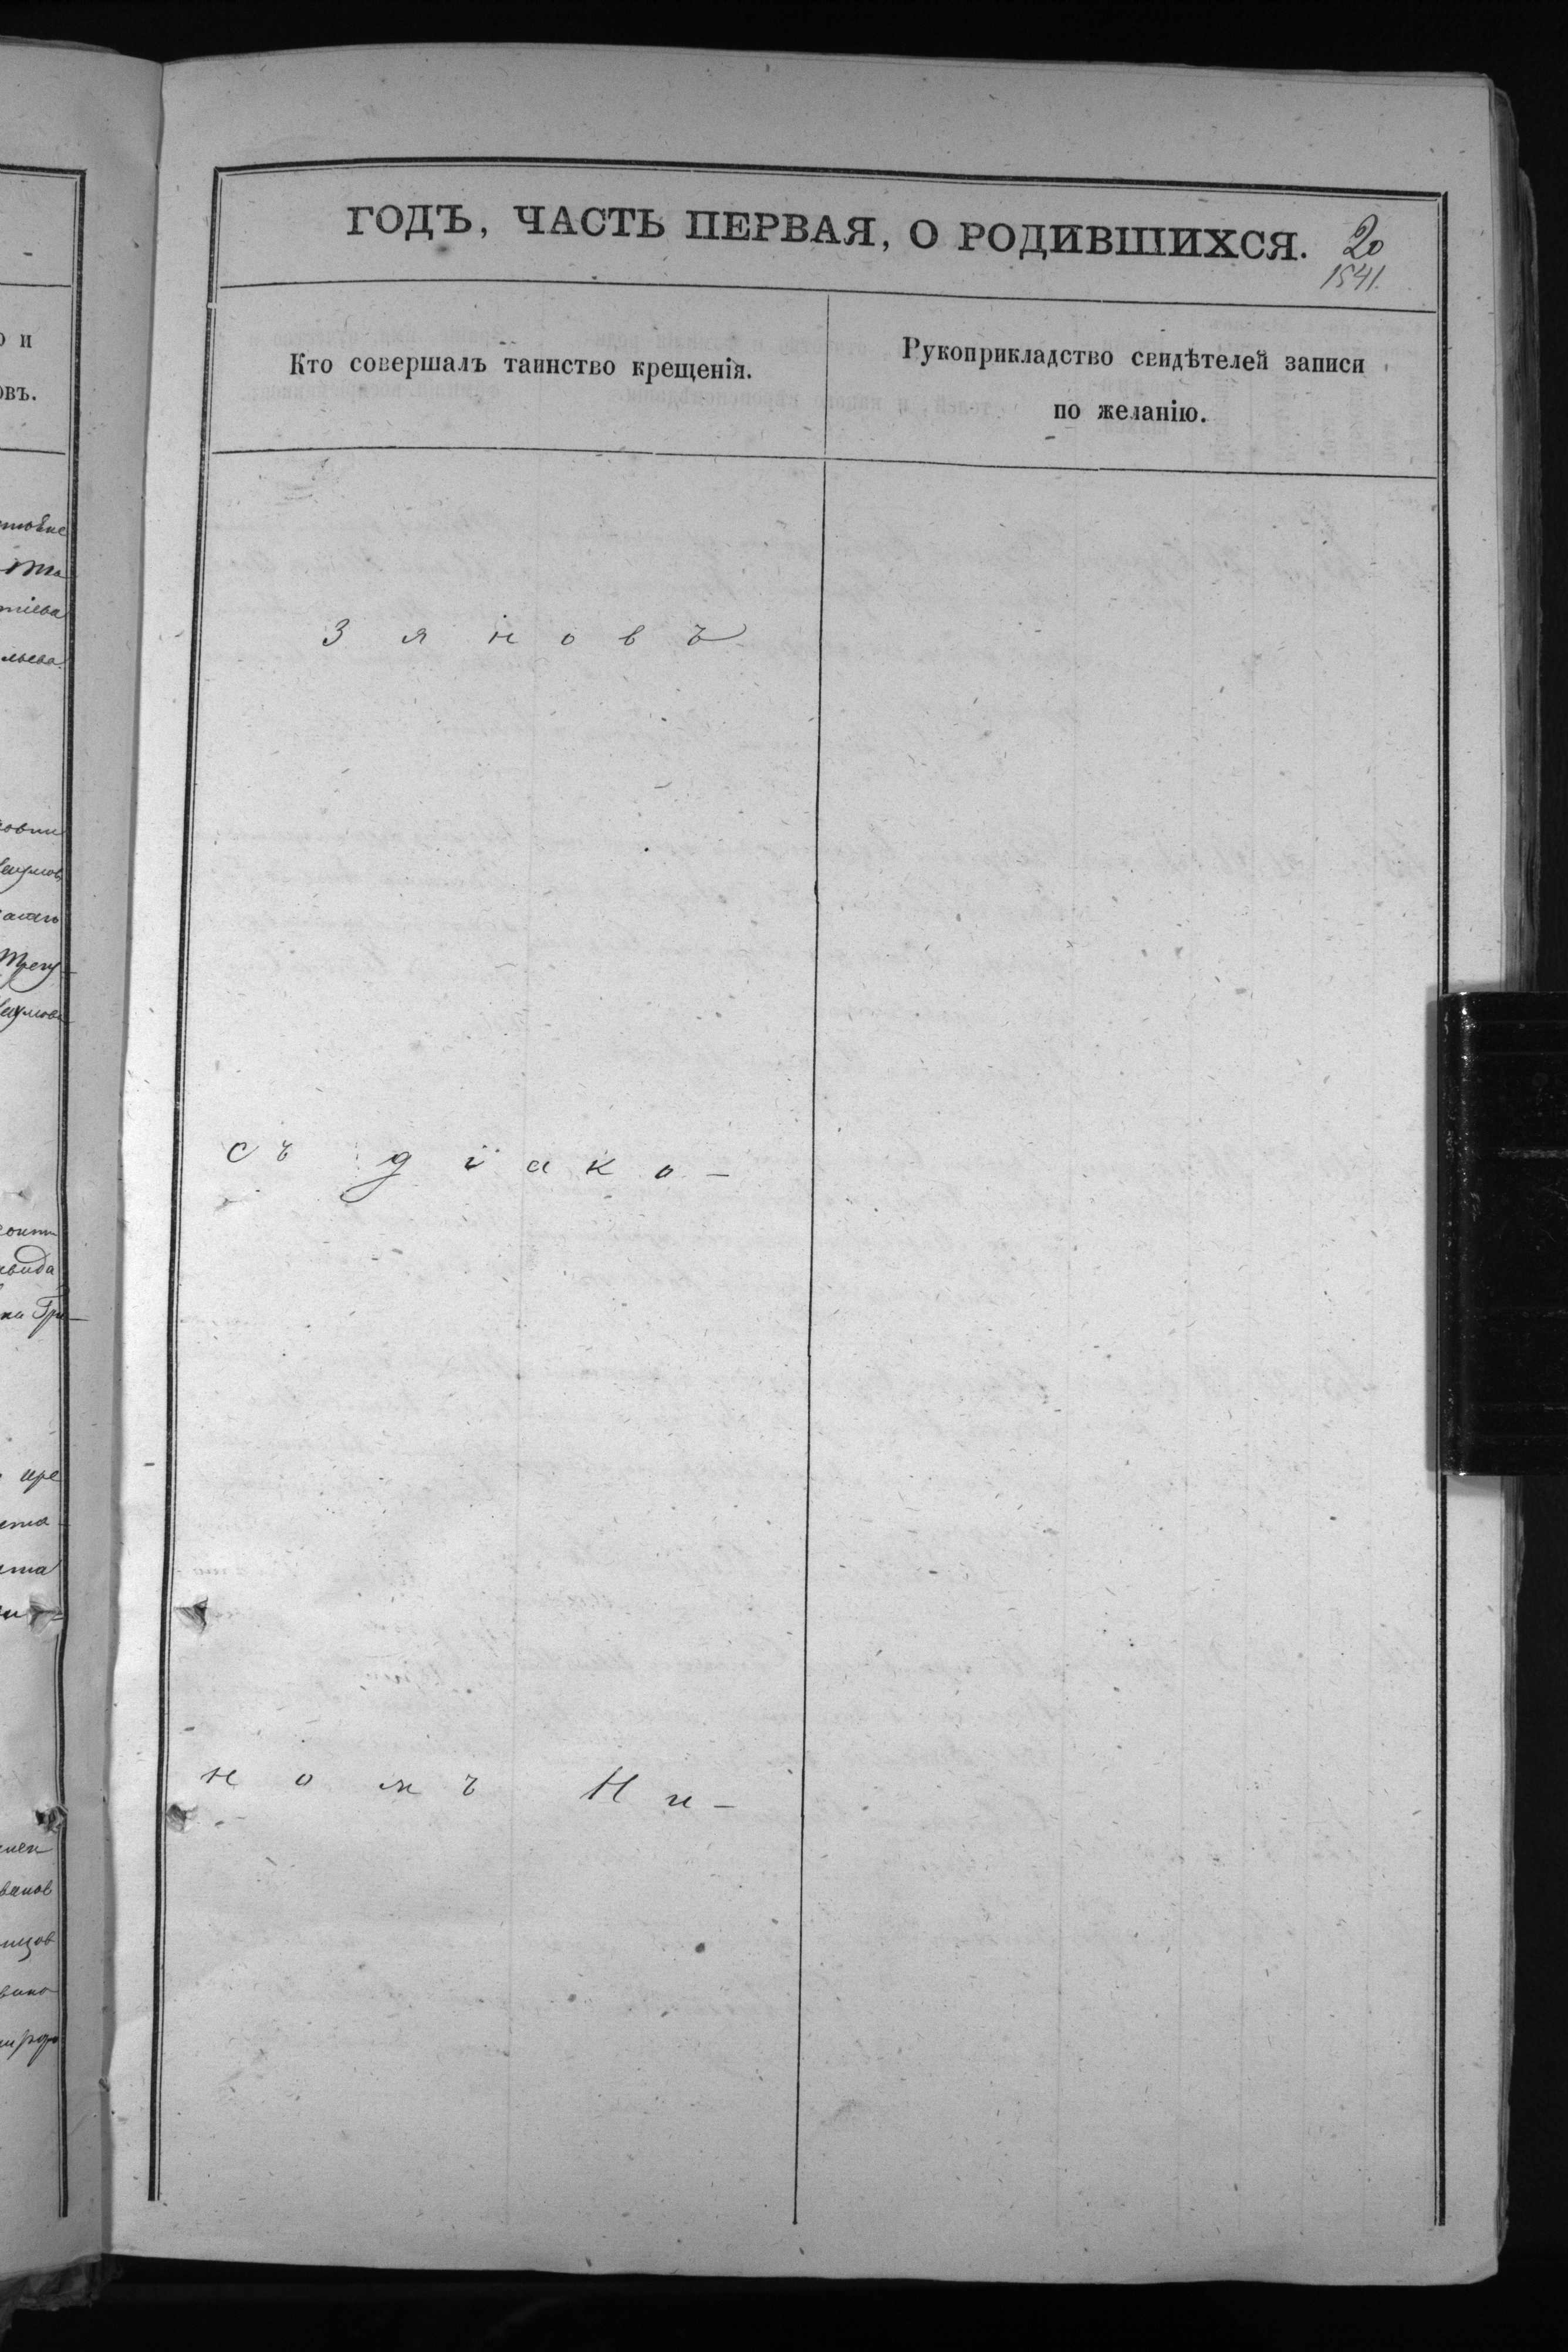 ГОДЪ, ЧАСТЬ ПЕРВАЯ, О РОДИВШИХСЯ.
20
1541.
о и
овъ.
Кто совершалъ таинство крещенія.
Рукоприкладство свидѣтелей записи
по желанію.
тіева
льева
З я н о в ъ
съ д і а к о -
авида
н о м ъ Н и -